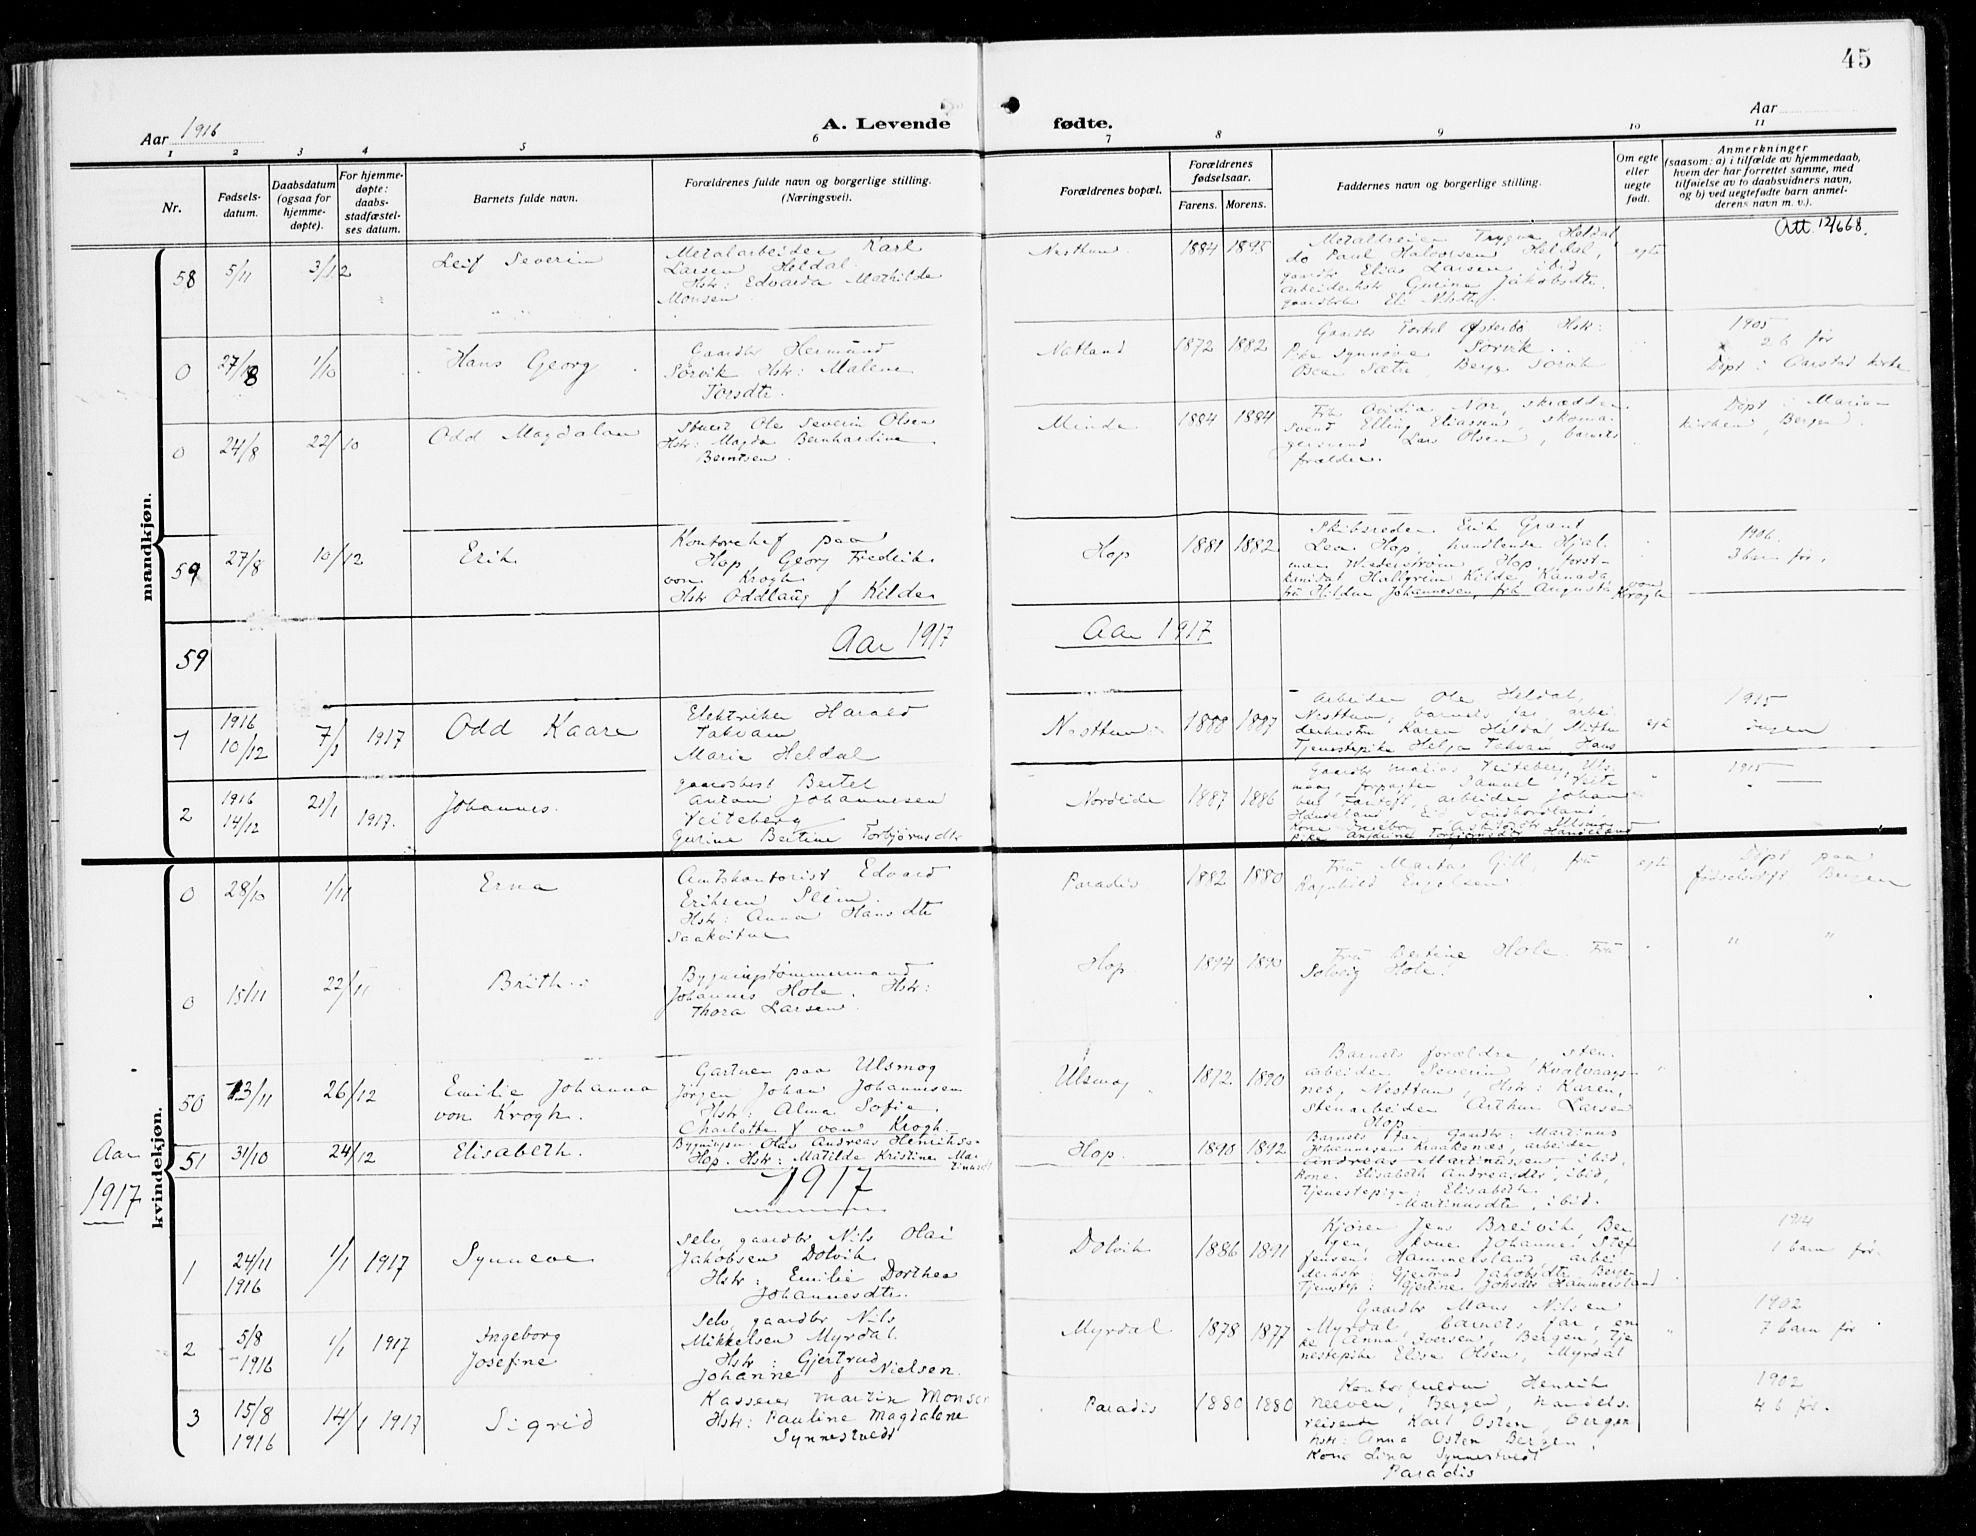 45
Aar 1916
A. Levende fødte.
Aar
1 2 3 4 5 6 7 8 9 10 11
Nr.
Fødsels-
datum.
Daabsdatum
(ogsaa for
hjemme-
døpte).
For hjemme-
døpte:
daabs-
stadfæstel-
ses datum.
Barnets fulde navn.
Forældrenes fulde navn og borgerlige stilling.
(Næringsvei).
Forældrenes bopæl.
Forældrenes
fødselsaar.
Farens. Morens.
Faddernes navn og borgerlige stilling.
Om egte
eller
uegte
født.
Anmerkninger
(saasom: a) i tilfælde av hjemmedaab,
hvem der har forrettet samme, med
tilføielse av to daabsvidners navn,
og b) ved uegtefødte barn anmel-
derens navn m. v.).
mandkjøn.
58 5/11 3/12 Leif Severin
Metalarbeider Karl
Larsen Heldal.
Hstr: Edvarda Mathilde
Monsen
Nesttun 1884 1895
Trygve Heldal,
do Paul Halvorsen Heldal,
gaardbr Elias Larsen ibid,
arbeiderhstr Gurine Jakobsdtr.
egte
Att 12/6 68.
0 27/8 1/10 Hans Georg
Gaardbr Hermund
Sørvik Hstr: Malene
Torsdtr.
Natland 1872 1882
Gaardbr Torkel Østerbö Hstr:
Pike Synnöve Sörvik.
Oscar Sætre, Berge Sörvik
1905
2 b før
Döpt i Aarstad kirke
0 24/8 22/10 Odd Magdalon
Stuert Ole Severin Olsen
Hstr: Magda Bernhardine
Berntsen.
Minde 1884 1884
Frk Ovidia Nor, skrædder
svend Elling Eliassen, skoma-
gersvend Lars Olsen, barnets
forældre.
Döpt i Maria-
kirken, Bergen.
59 27/8 10/12 Erik
Kontorchef paa
Hop Georg Fredrik
von Krogh
Hstr Oddlaug f Kilde
Hop 1881 1882
Skibsreder Erik Grant
Lea Hop, handlende Hjal-
mar Wiederstrøm Hop, forst-
kandidat Hallgrim Kilde, Kanada
fru Hildur Johannesen, frk Augusta von
Krogh
1906.
3 barn før.
59
Aar 1917 Aar 1917
1 1916 10/12 7/1 1917 Odd Kaare
Elektriker Harald
Takvam
Marie Heldal
Nesttun 1888 1887
Arbeider Ole Heldal,
Nesttun, barnets far, arbei-
derhustru Karen Heldal, Midttun
Tjenestepike Helga Takvam, Hans
egte
1915
ingen
2 1916 14/12 21/1 1917. Johannes.
Gaardbest Bertel
Anton Johannesen
Veiteberg
Gurine Bertine Torbjørnsdtr
Nordeide 1887 1886
Gaardbr Matias Veiteberg, Uls-
mag, forpagter Samuel Veite-
berg Fantoft, arbeider Johan
1915
kvindekjøn.
0 28/10 1/11 Erna
Amtskontorist Edvard
Eriksen Slim.
Hstr: Anna Hansdtr
Saakvitne
Paradis 1882 1880
Fru Marta Gill, fru
Ragnhild Engelsen
egte
Döpt paa
fødselsstift Bergen
0 15/11 22/11 Brith
Bygningstømmermand
Johannes Hole. Hstr:
Thora Larsen.
Hop. 1894 1890
Fru Bertine Hole. Fru
Solveig Hole.
" "
50 13/11 26/12 Emilie Johanna
von Krogh.
Gartner paa Ulsmog
Jørgen Johan Johannesen
Hstr: Alma Sofie
Charlotte f von Krogh.
Ulsmog 1892 1890
Barnets forældre, sten-
arbeider Severin Kvalvaags-
nes, Nesttun, Hstr: Karen,
stenarbeider Arthur Larsen
Hop.
51 31/10 24/12 Elisabeth.
Bygningsm. Olav Andreas Henriks-
Hop. Hstr: Matilde Kristine Mar-
tinusdt
Hop. 1890 1892
Barnets far, gaardbr: Martinus
Johannesen Kraakenes, arbeider
Andreas Martinussen ibid,
kone Elisabeth Andreasdtr, ibid,
tjenestepige Elisabeth
Martinusdtr, ibid.
Aar
1917
1917
1 24/11 1916 1/1 1917 Synneve
Selv. gaardbr Nils Olai
Jakobsen Dolvik
Hstr: Emilie Dorthea
Johannesdtr.
Dolvik 1886 1891
Kjører Jens Breivik Ber-
gen, kone Johanne Stef-
fensen Hammersland arbei-
derhstr: Gjertrud Jakobsdtr Bergen
Tjenestep: Gjertine Johsdtr Hammersland
1914
1 barn før.
2 5/8 1916 1/1 1917 Ingeborg
Josefine
Selv. gaardbr Nils
Mikkelsen Myrdal.
Hstr: Gjertrud
Johanne f Nielsen.
Myrdal 1878 1877
Gaardbr Mons Nilsen
Myrdal, barnets far, en-
ke Anna Iversen, Bergen, tje-
nestepike Elise Olsen, Myrdal
1902
7 barn før
3 15/8 1916 14/1 1917 Sigrid
Kasserer Martin Monsen
Hstr: Pauline Magdalene
Synnestvedt
Paradis 1880 1880
Henrik
Neeven, Bergen, handels-
reisende Karl Osten, Bergen
hstr: Anna Osten Bergen,
Kone Lina Synnestvedt
Paradis
1902
4 b før.